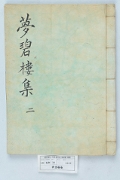 夢碧樓集 二